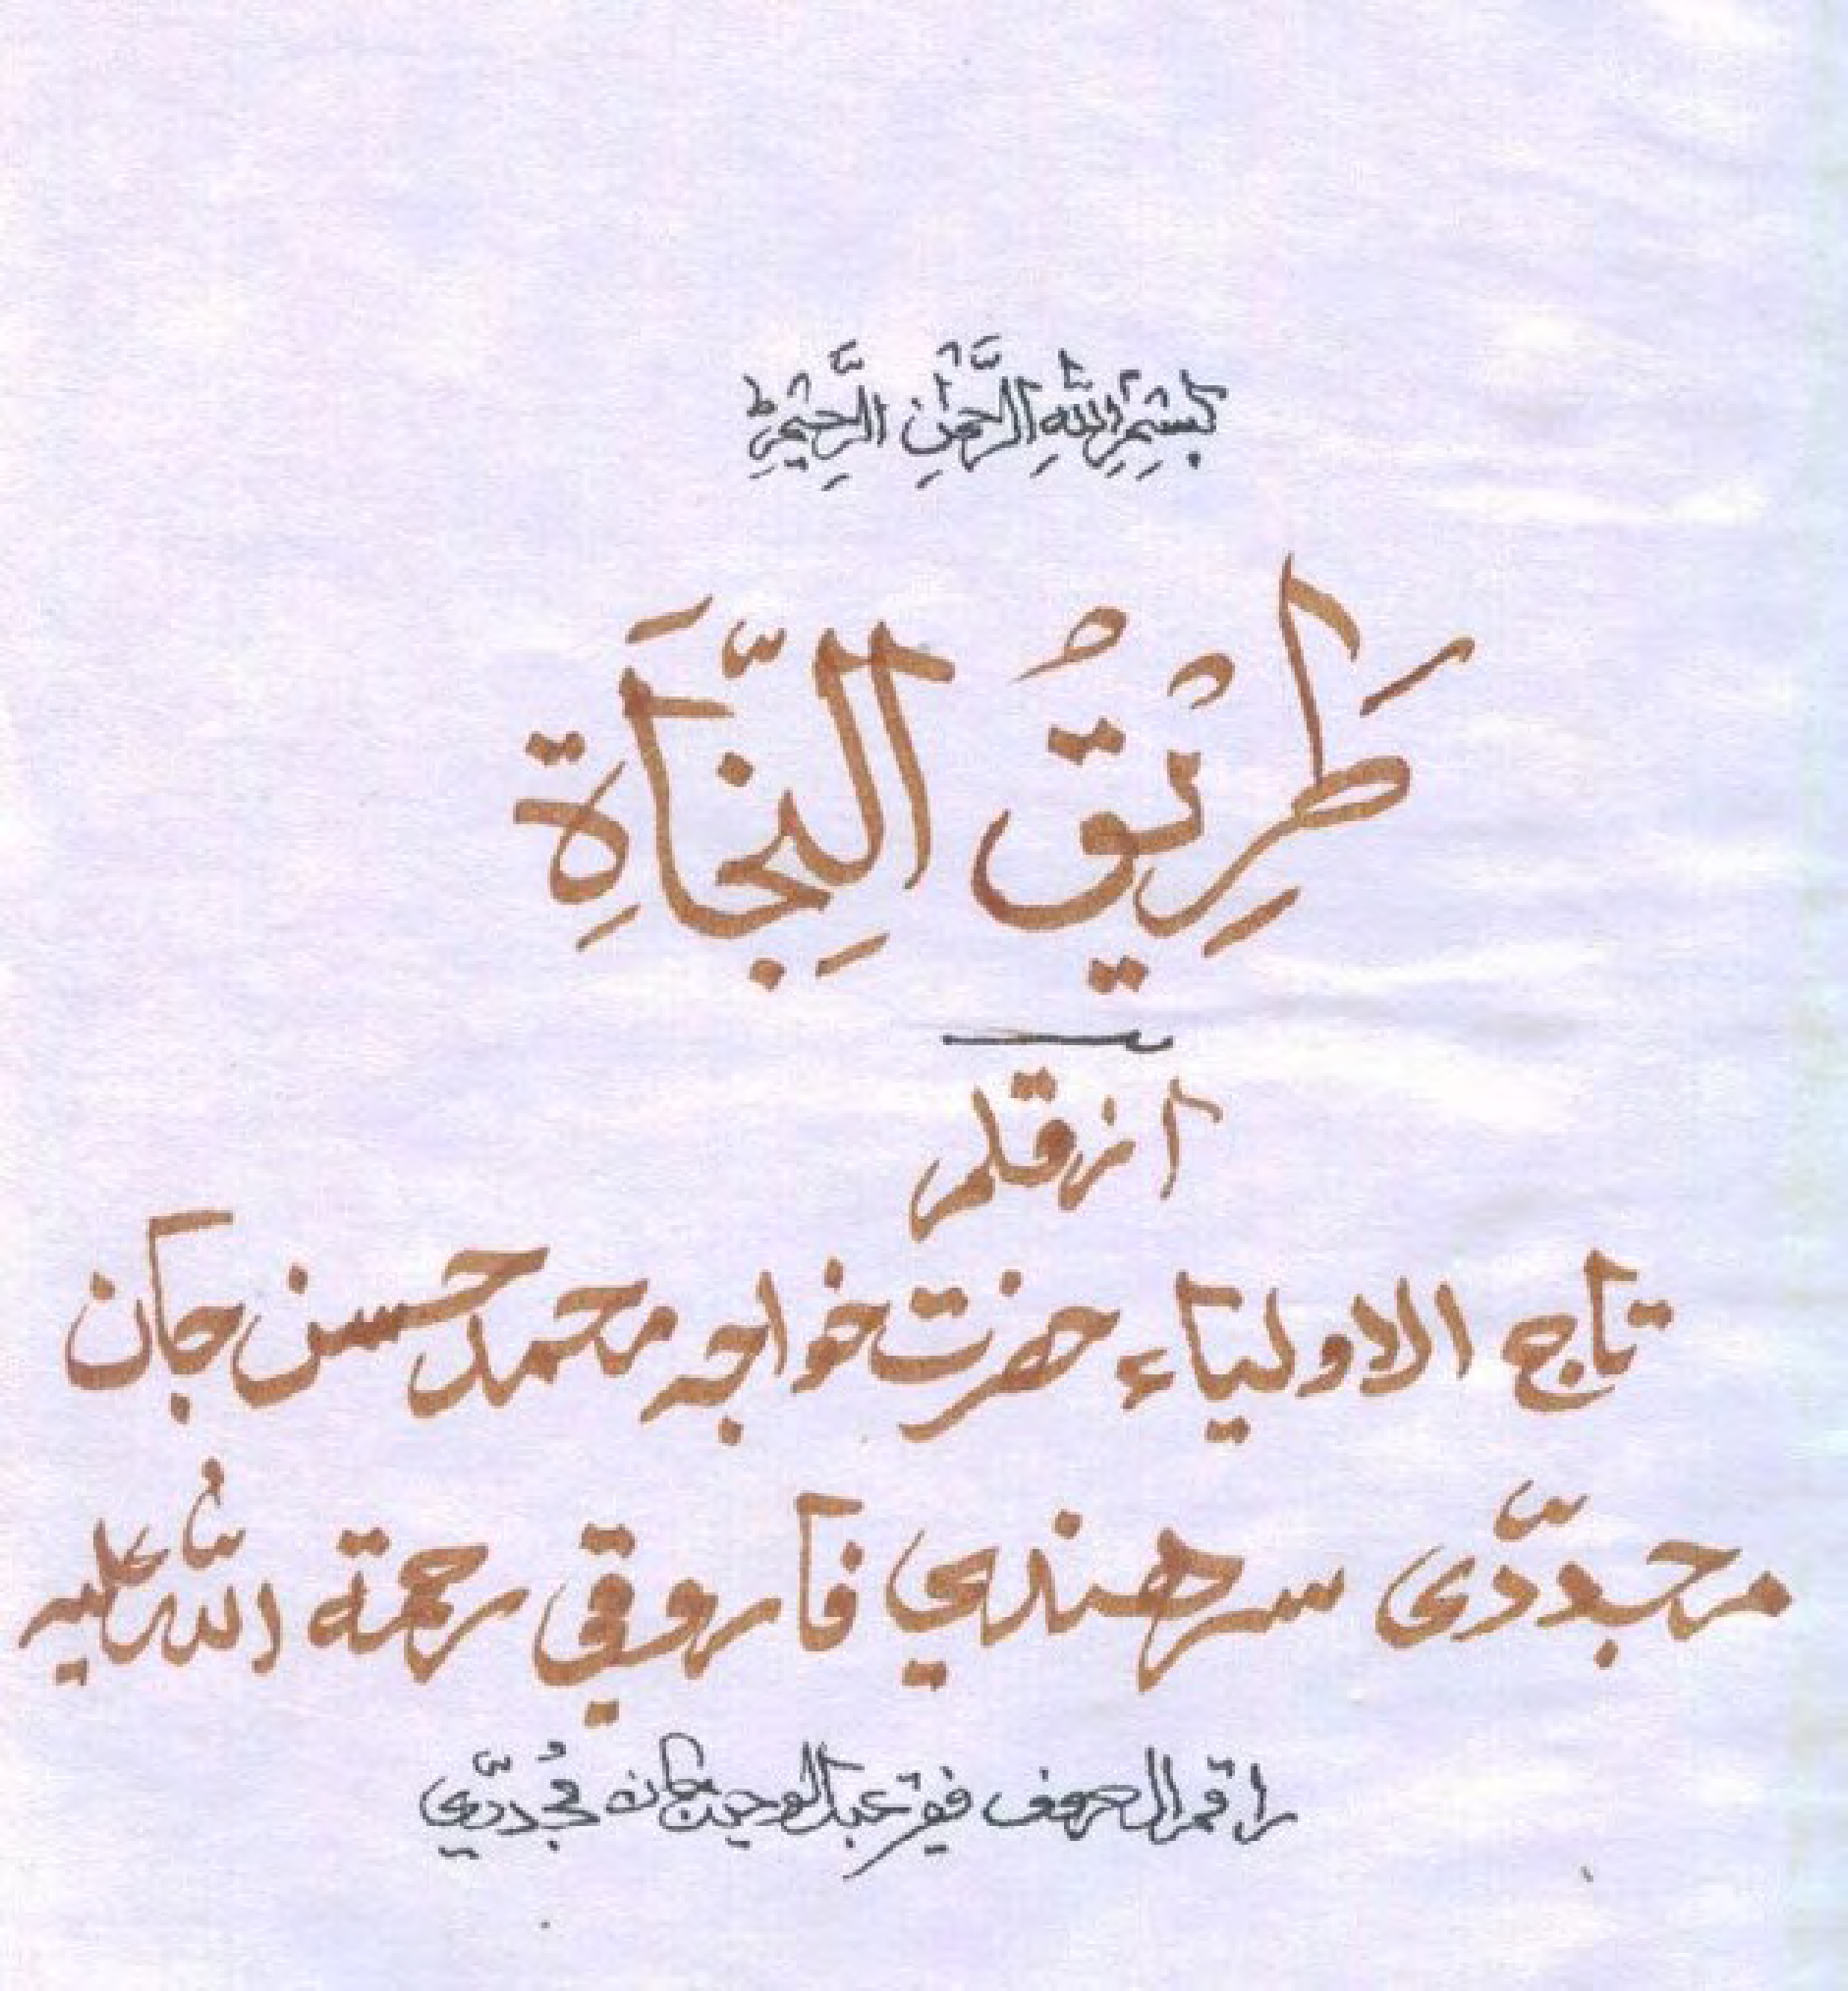 بِسْمِ اللهِ الرَّحْمٰنِ الرَّحِيْمِ ط
طَرِيْقُ النَّجَاةِ
از قلم
تاج الاولیاء حضرت خواجه محمد حسن جان
مجدّدی سرهندي فاروقي رحمة اللّٰه علیه
راقم الحروف فقیر عبدالوحید جان مُجددّي